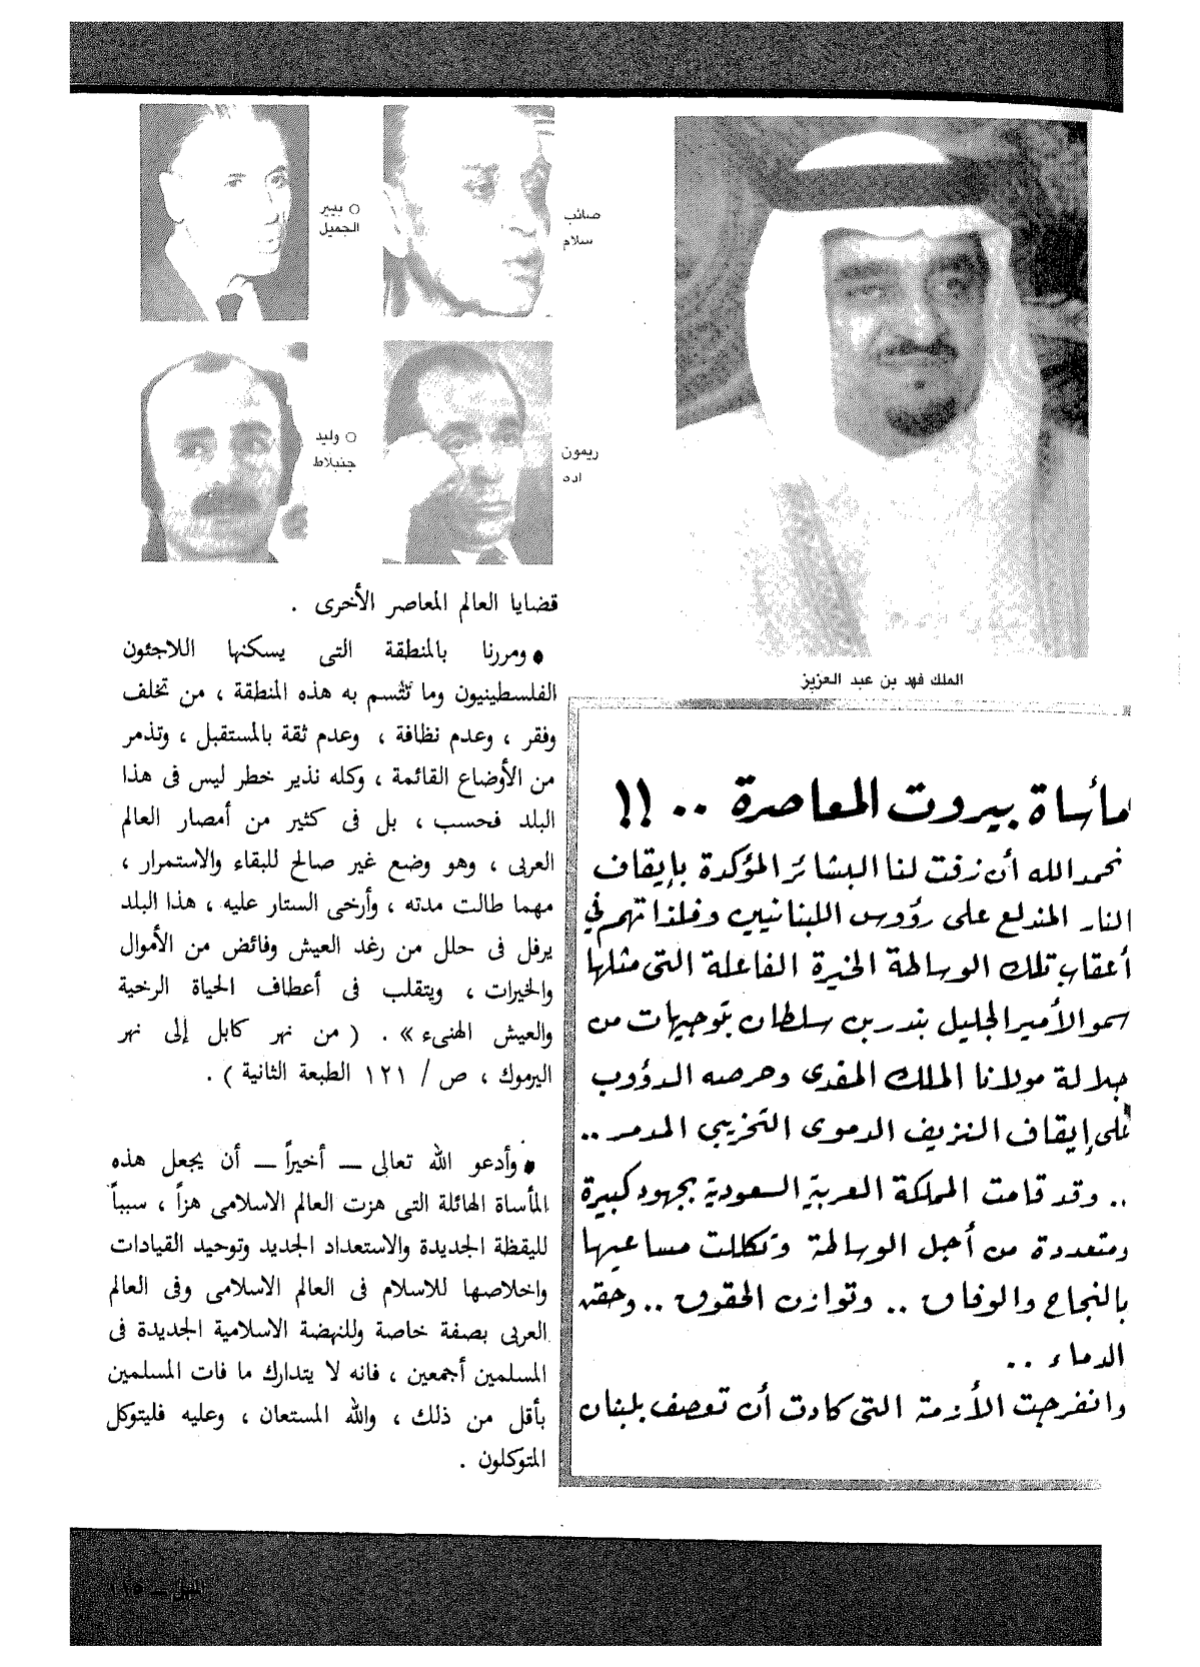 ○ بيير
الجميل
صائب
سلام
○ وليد
جنبلاط
ريمون
اده
الملك فهد بن عبد العزيز
مأساة بيروت المعاصرة .. !!
نحمد الله أن زفت لنا البشائر المؤكدة بإيقاف
النار المندلع على رؤوس اللبنانيين وفلذاتهم في
أعقاب تلك الوساطة الخيرة الفاعلة التى مثلها
سمو الأمير الجليل بندر بن سلطان بتوجيهات من
جلالة مولانا الملك المفدى وحرصه الدؤوب
على إيقاف النزيف الدموى التخريبي المدمر ..
.. وقد قامت المملكة العربية السعودية بجهود كبيرة
ومتعددة من أجل الوساطة وتكللت مساعيها
بالنجاح والوفاق .. وتوازن الحقوق .. وحقن
الدماء ..
وانفرجت الأزمة التى كادت أن تعصف بلبنان
قضايا العالم المعاصر الأخرى .
● ومررنا بالمنطقة التى يسكنها اللاجئون
الفلسطينيون وما تتسم به هذه المنطقة ، من تخلف
وفقر ، وعدم نظافة ، وعدم ثقة بالمستقبل ، وتذمر
من الأوضاع القائمة ، وكله نذير خطر ليس فى هذا
البلد فحسب ، بل فى كثير من أمصار العالم
العربى ، وهو وضع غير صالح للبقاء والاستمرار ،
مهما طالت مدته ، وأرخى الستار عليه ، هذا البلد
يرفل فى حلل من رغد العيش وفائض من الأموال
والخيرات ، ويتقلب فى أعطاف الحياة الرخية
والعيش الهنىء » . ( من نهر كابل إلى نهر
اليرموك ، ص / ١٢١ الطبعة الثانية ) .
● وأدعو الله تعالى ــ أخيراً ــ أن يجعل هذه
المأساة الهائلة التى هزت العالم الاسلامى هزاً ، سبباً
لليقظة الجديدة والاستعداد الجديد وتوحيد القيادات
واخلاصها للاسلام فى العالم الاسلامى وفى العالم
العربى بصفة خاصة وللنهضة الاسلامية الجديدة فى
المسلمين أجمعين ، فانه لا يتدارك ما فات المسلمين
بأقل من ذلك ، والله المستعان ، وعليه فليتوكل
المتوكلون .